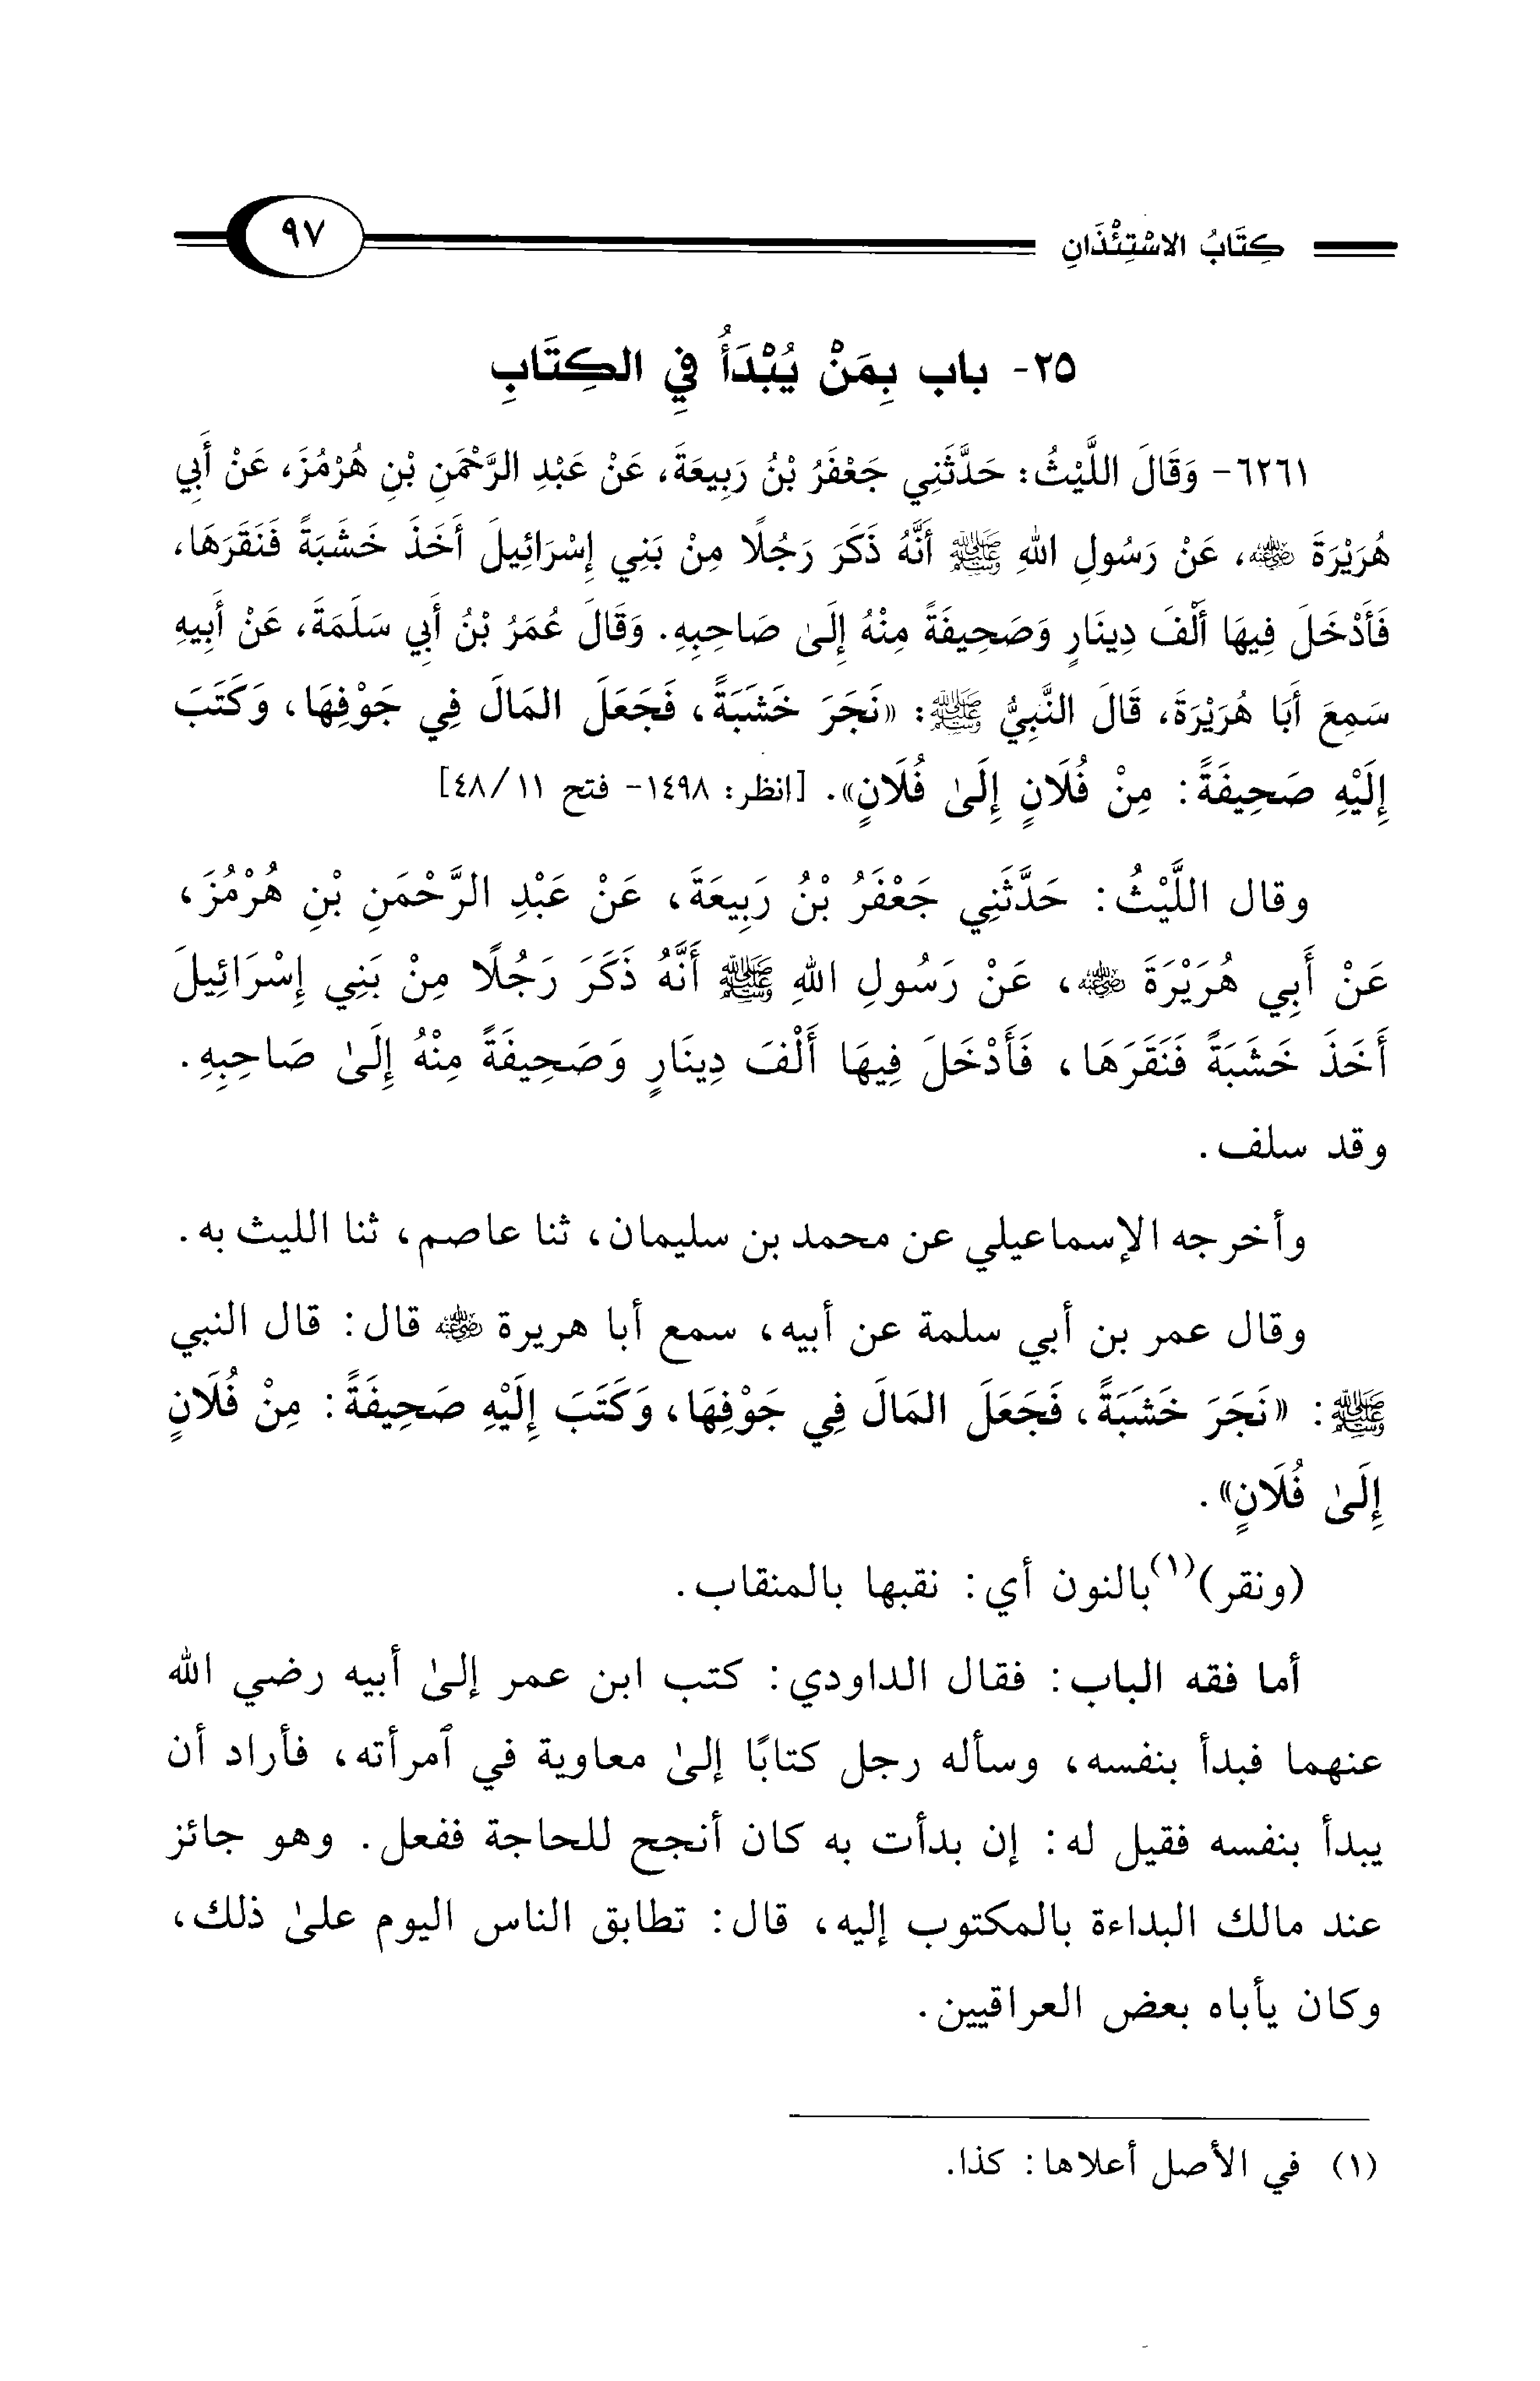 كِتَابُ الاسْتِئْذَانِ
٩٧
٢٥- باب بِمَنْ يُبْدَأُ فِي الكِتَابِ
٦٢٦١- وَقَالَ اللَّيْثُ: حَدَّثَنِي جَعْفَرُ بْنُ رَبِيعَةَ، عَنْ عَبْدِ الرَّحْمَنِ بْنِ هُرْمُزَ، عَنْ أَبِي
هُرَيْرَةَ ﵁، عَنْ رَسُولِ اللهِ ﷺ أَنَّهُ ذَكَرَ رَجُلًا مِنْ بَنِي إِسْرَائِيلَ أَخَذَ خَشَبَةً فَنَقَرَهَا،
فَأَدْخَلَ فِيهَا أَلْفَ دِينَارٍ وَصَحِيفَةً مِنْهُ إِلَىٰ صَاحِبِهِ. وَقَالَ عُمَرُ بْنُ أَبِي سَلَمَةَ، عَنْ أَبِيهِ
سَمِعَ أَبَا هُرَيْرَةَ، قَالَ النَّبِيُّ ﷺ: «نَجَرَ خَشَبَةً، فَجَعَلَ المَالَ فِي جَوْفِهَا، وَكَتَبَ
إِلَيْهِ صَحِيفَةً: مِنْ فُلَانٍ إِلَىٰ فُلَانٍ». [انظر: ١٤٩٨- فتح ١١/ ٤٨]
وقال اللَّيْثُ: حَدَّثَنِي جَعْفَرُ بْنُ رَبِيعَةَ، عَنْ عَبْدِ الرَّحْمَنِ بْنِ هُرْمُزَ،
عَنْ أَبِي هُرَيْرَةَ ﵁، عَنْ رَسُولِ اللهِ ﷺ أَنَّهُ ذَكَرَ رَجُلًا مِنْ بَنِي إِسْرَائِيلَ
أَخَذَ خَشَبَةً فَنَقَرَهَا، فَأَدْخَلَ فِيهَا أَلْفَ دِينَارٍ وَصَحِيفَةً مِنْهُ إِلَىٰ صَاحِبِهِ.
وقد سلف.
وأخرجه الإسماعيلي عن محمد بن سليمان، ثنا عاصم، ثنا الليث به.
وقال عمر بن أبي سلمة عن أبيه، سمع أبا هريرة ﵁ قال: قال النبي
ﷺ: «نَجَرَ خَشَبَةً، فَجَعَلَ المَالَ فِي جَوْفِهَا، وَكَتَبَ إِلَيْهِ صَحِيفَةً: مِنْ فُلَانٍ
إِلَىٰ فُلَانٍ».
(ونقر)(١)بالنون أي: نقبها بالمنقاب.
أما فقه الباب: فقال الداودي: كتب ابن عمر إلىٰ أبيه رضي الله
عنهما فبدأ بنفسه، وسأله رجل كتابًا إلىٰ معاوية في ٱمرأته، فأراد أن
يبدأ بنفسه فقيل له: إن بدأت به كان أنجح للحاجة ففعل. وهو جائز
عند مالك البداءة بالمكتوب إليه، قال: تطابق الناس اليوم علىٰ ذلك،
وكان يأباه بعض العراقيين.
(١) في الأصل أعلاها: كذا.